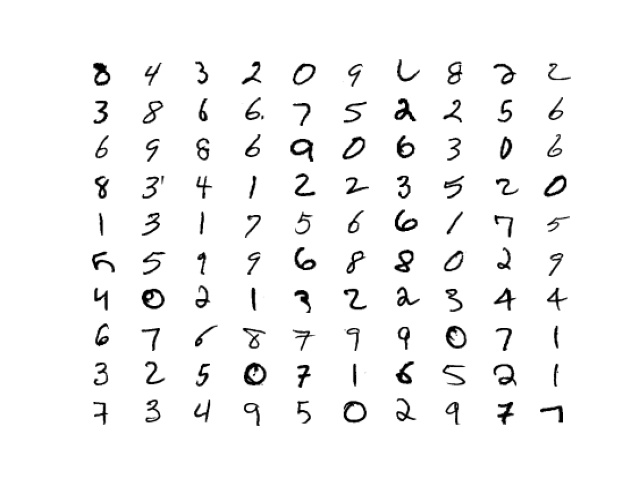 8 4 3 2 0 9 6 8 2 2
3 8 6 6. 7 5 2 2 5 6
6 9 8 6 9 0 6 3 0 6
8 3' 4 1 2 2 3 5 2 0
1 3 1 7 5 6 6 1 7 5
5 5 9 9 6 8 8 0 2 9
4 0 2 1 3 2 2 3 4 4
6 7 6 8 7 9 9 0 7 1
3 2 5 0 7 1 6 5 2 1
7 3 4 9 5 0 2 9 7 7